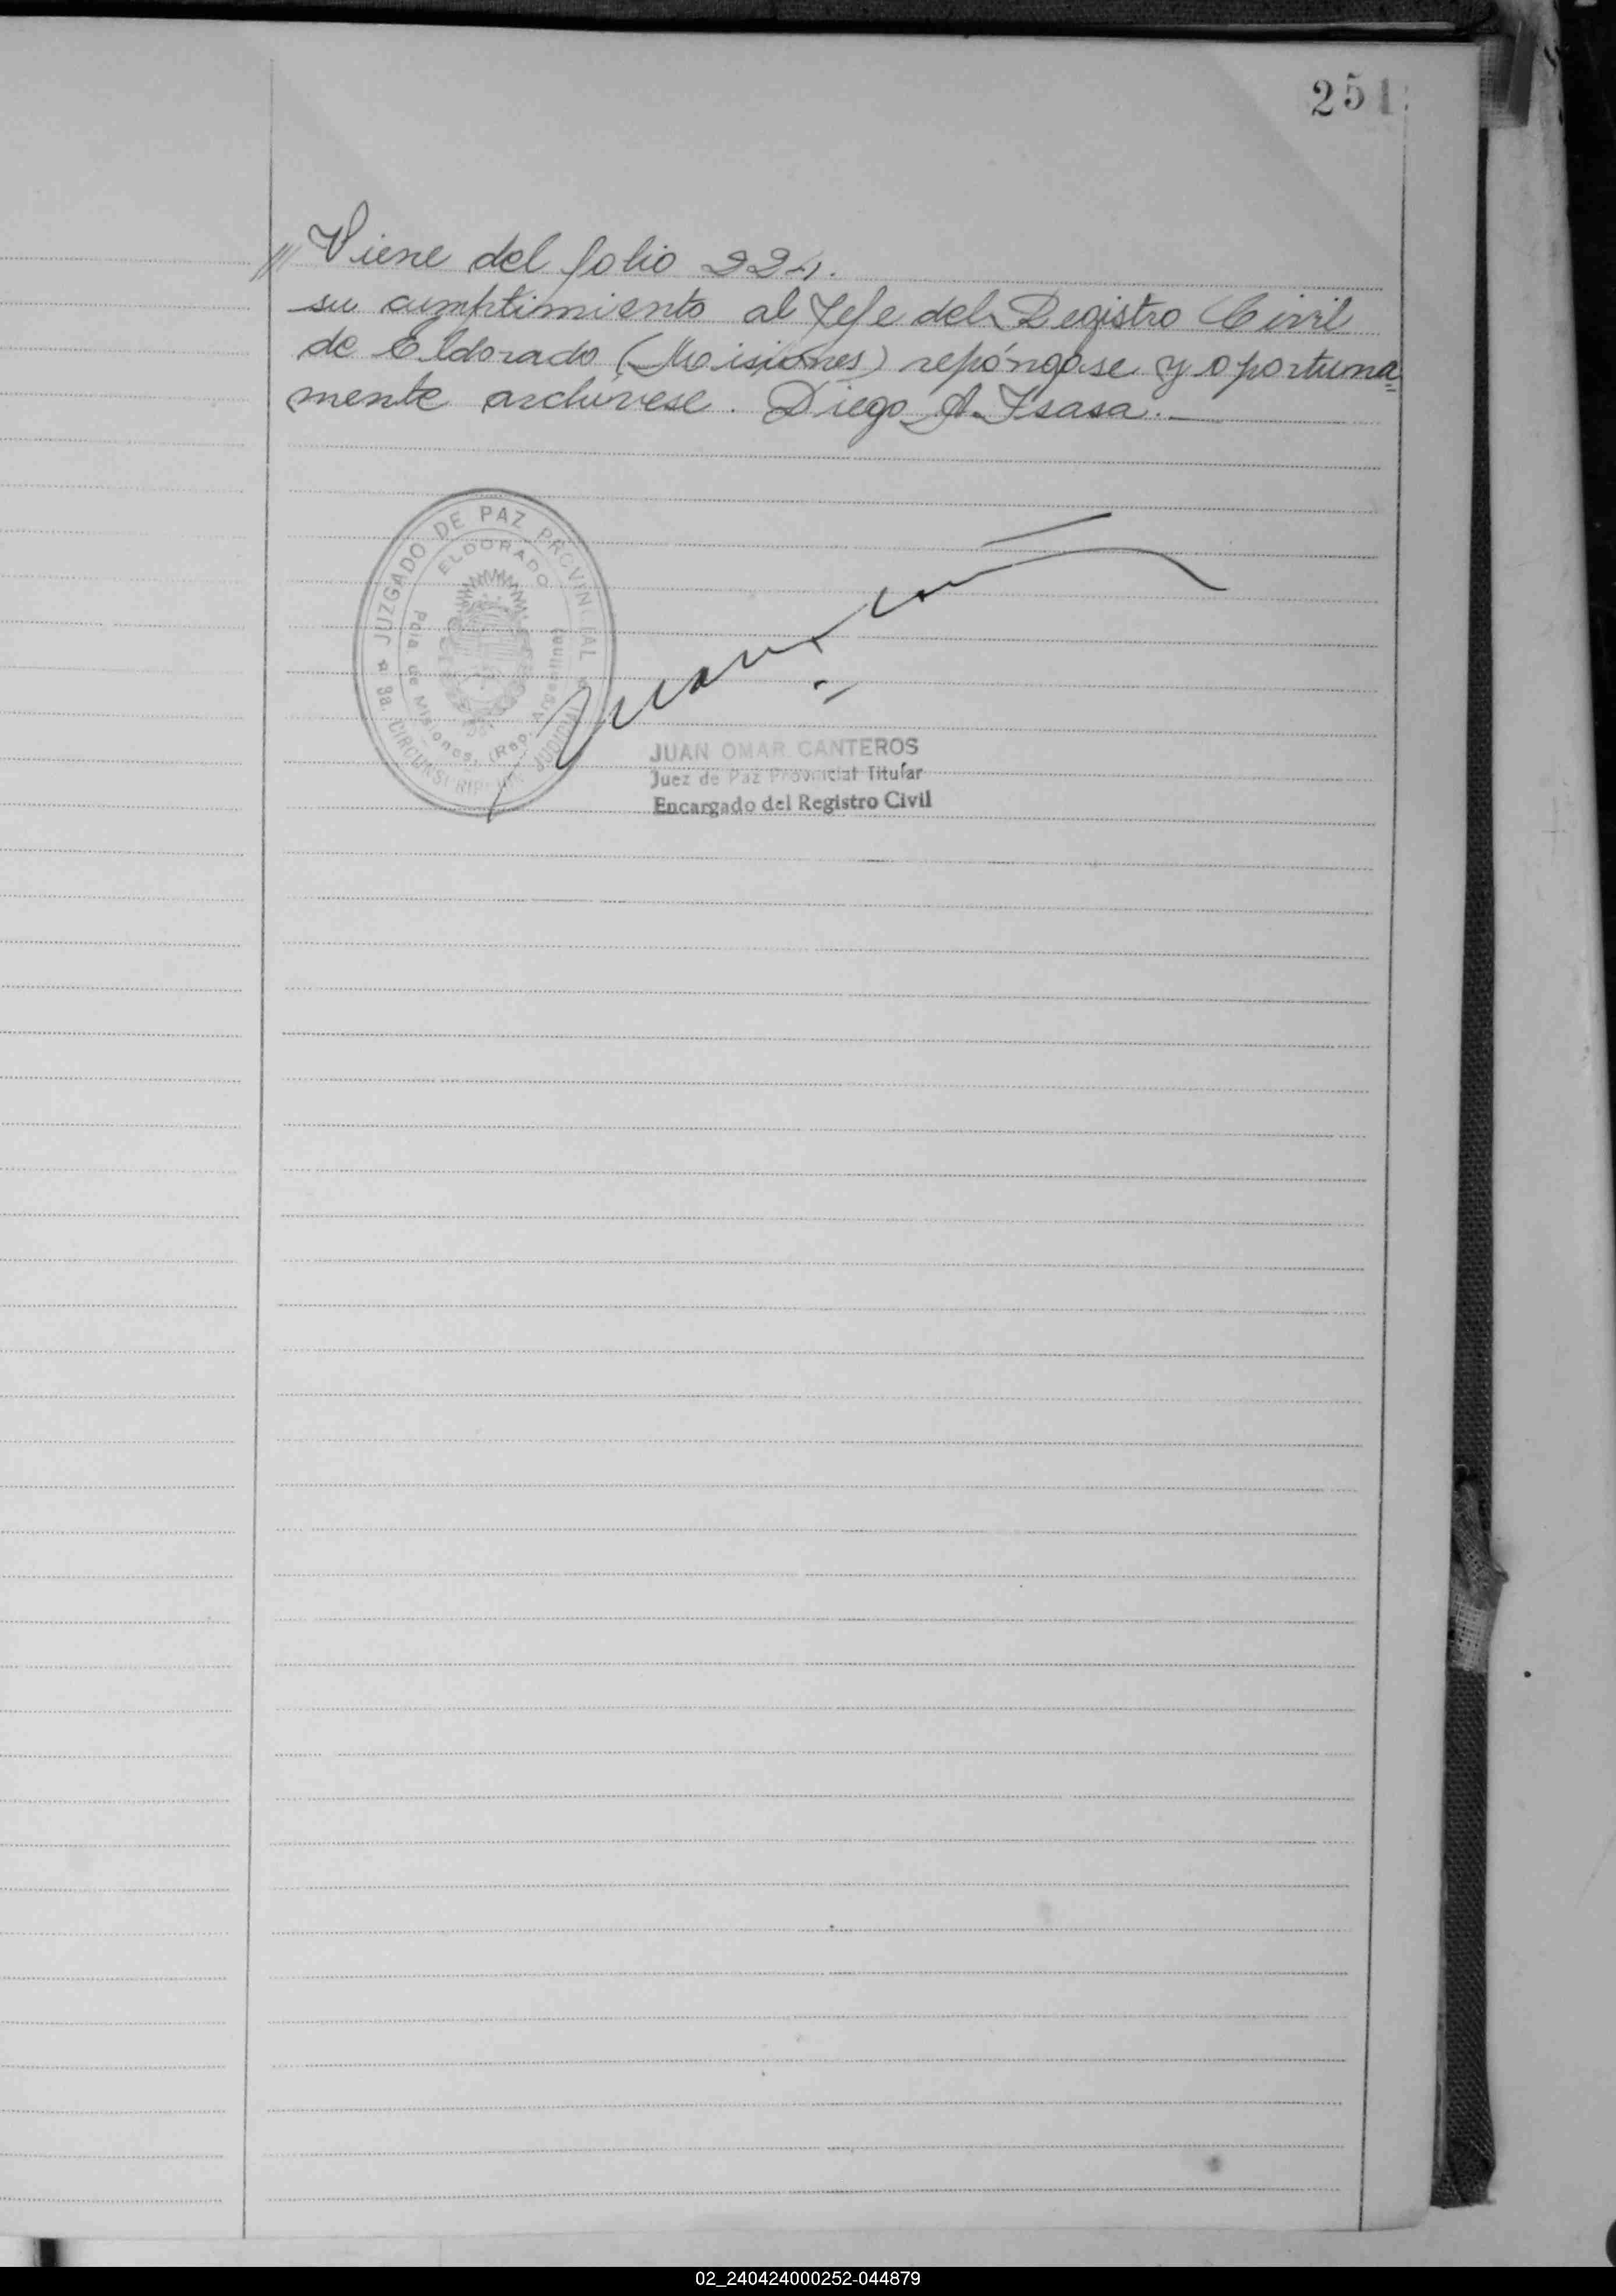 251
// Viene del folio 224.
su cumplimiento al Jefe del Registro Civil
de Eldorado (Misiones) repóngase y oportuna=
mente archívese. Diego A. Isasa.—
JUZGADO DE PAZ PROVINCIAL
ELDORADO
Pcia. de Misiones, (Rep. Argentina)
3a. CIRCUNSCRIPCION JUDICIAL
JUAN OMAR CANTEROS
Juez de Paz Provincial Titular
Encargado del Registro Civil
02_240424000252-044879